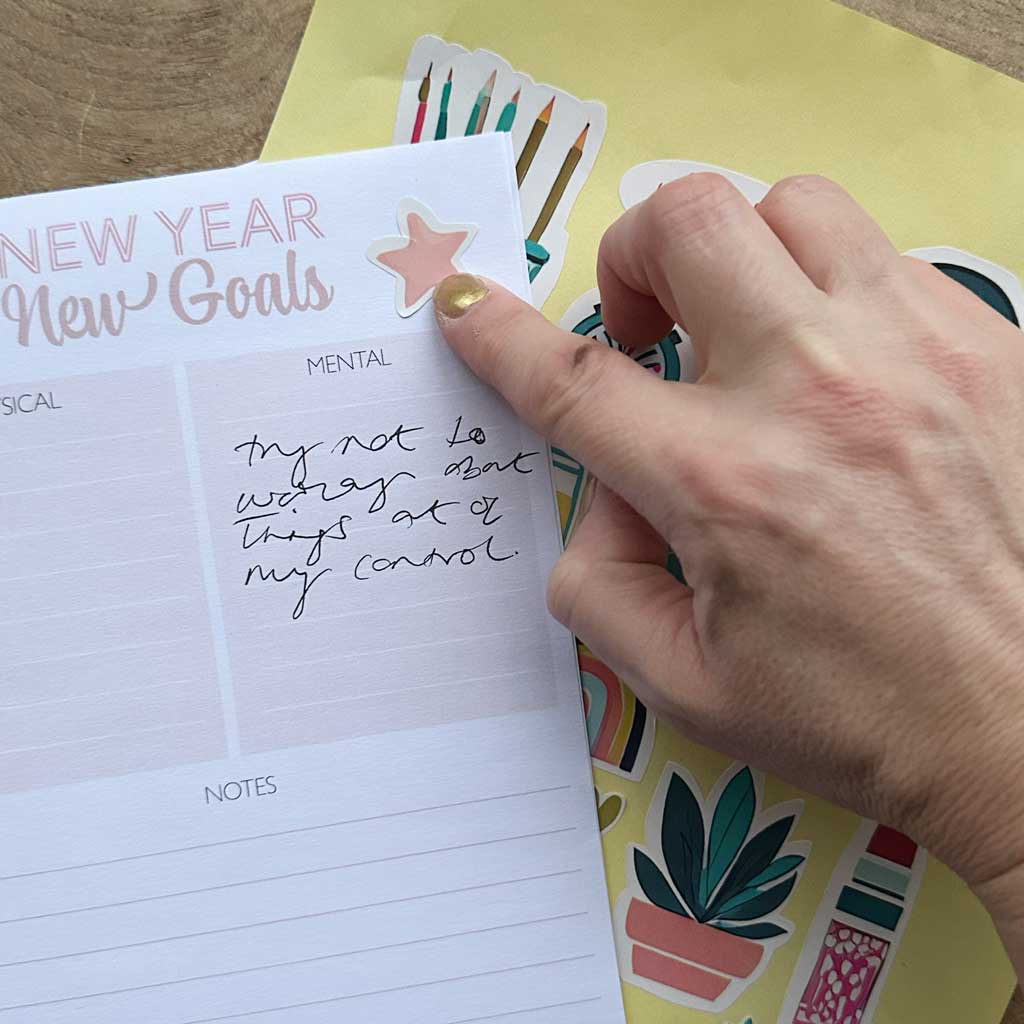 NEW YEAR
New Goals
SICAL
MENTAL
try not to
worry about
things out of
my control.
NOTES